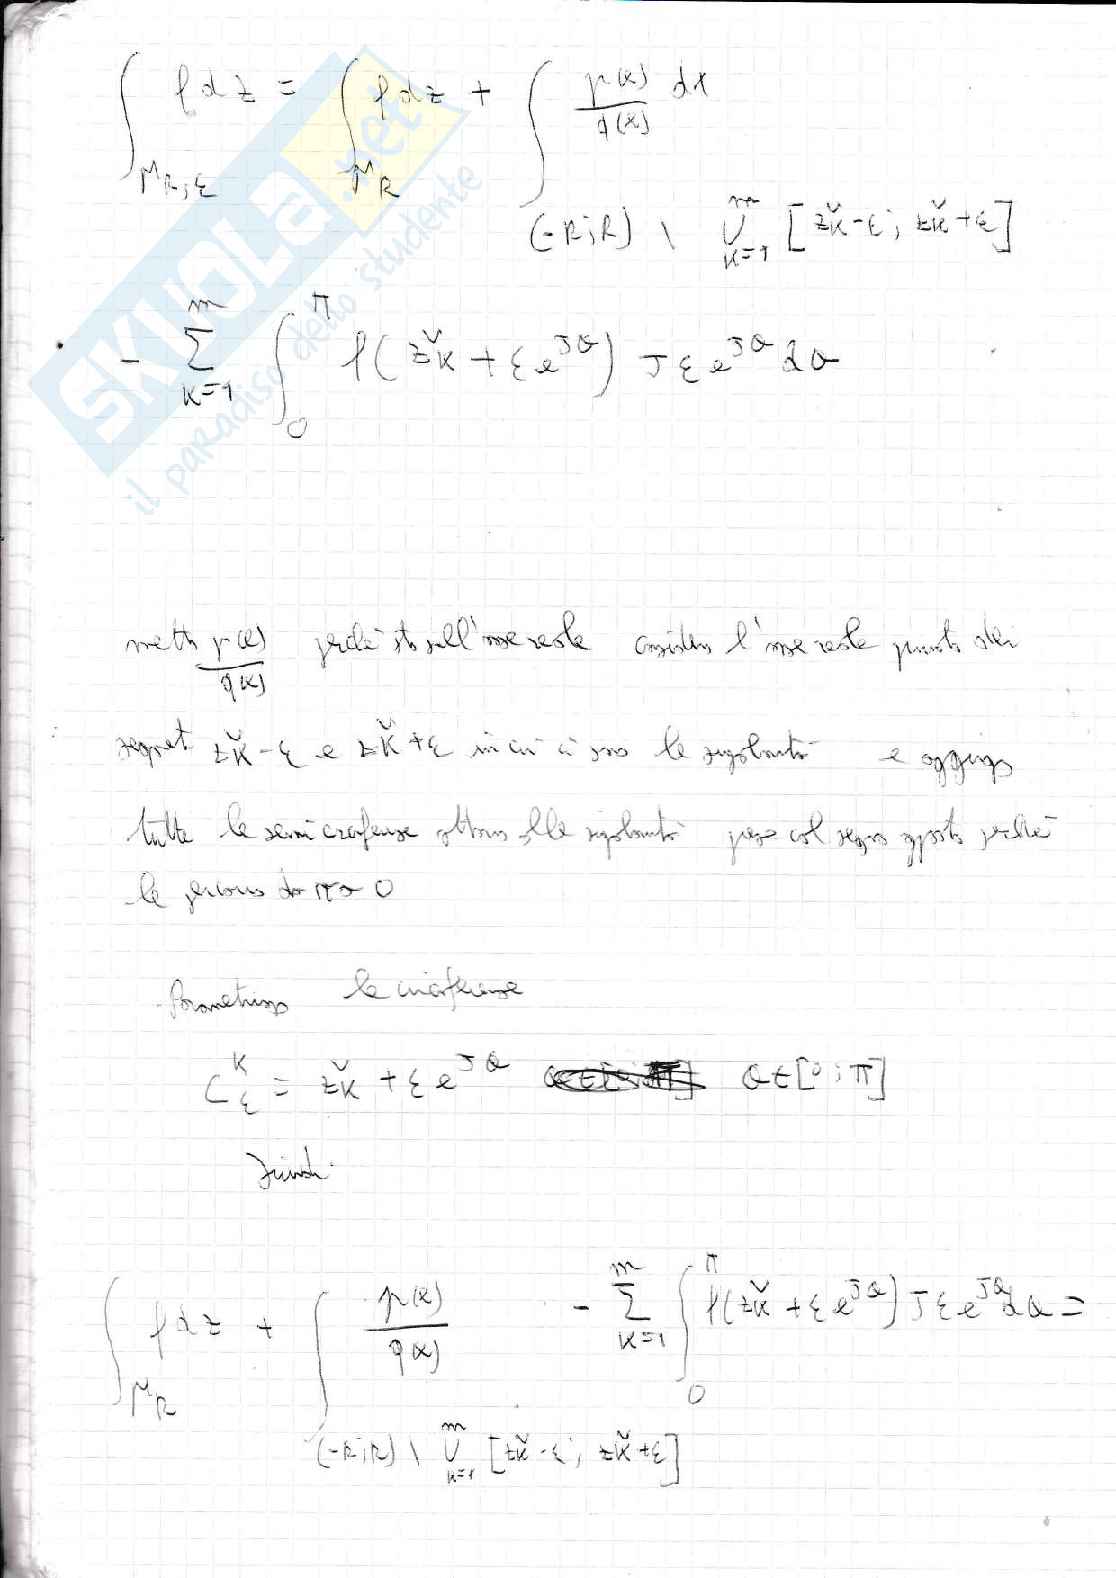 ∫_{Γ_{R,ε}} f dz = ∫_{Γ_R} f dz + ∫_{(-R;R) \ ⋃_{k=1}^{m} [žk-ε; žk+ε]} p(x)/q(x) dx
- ∑_{k=1}^{m} ∫_0^π f(žk + εe^{Jθ}) Jεe^{Jθ} dθ
SKUOLA.net
il paradiso dello studente
metto p(x)/q(x) perché sto sull'asse reale considero l'asse reale privato dei
segmenti žk-ε e žk+ε in cui ci sono le singolarità e aggiungo
tutte le semicirconferenze attorno alle singolarità prese col segno opposto perché
le percorro da π a 0
Parametrizzo le circonferenze
C_ε^k = žk + εe^{Jθ} θ∈[0;π]
Quindi
∫_{Γ_R} f dz + ∫_{(-R;R) \ ⋃_{k=1}^{m} [žk-ε; žk+ε]} p(x)/q(x) - ∑_{k=1}^{m} ∫_0^π f(žk+εe^{Jθ}) Jεe^{Jθ} dθ =